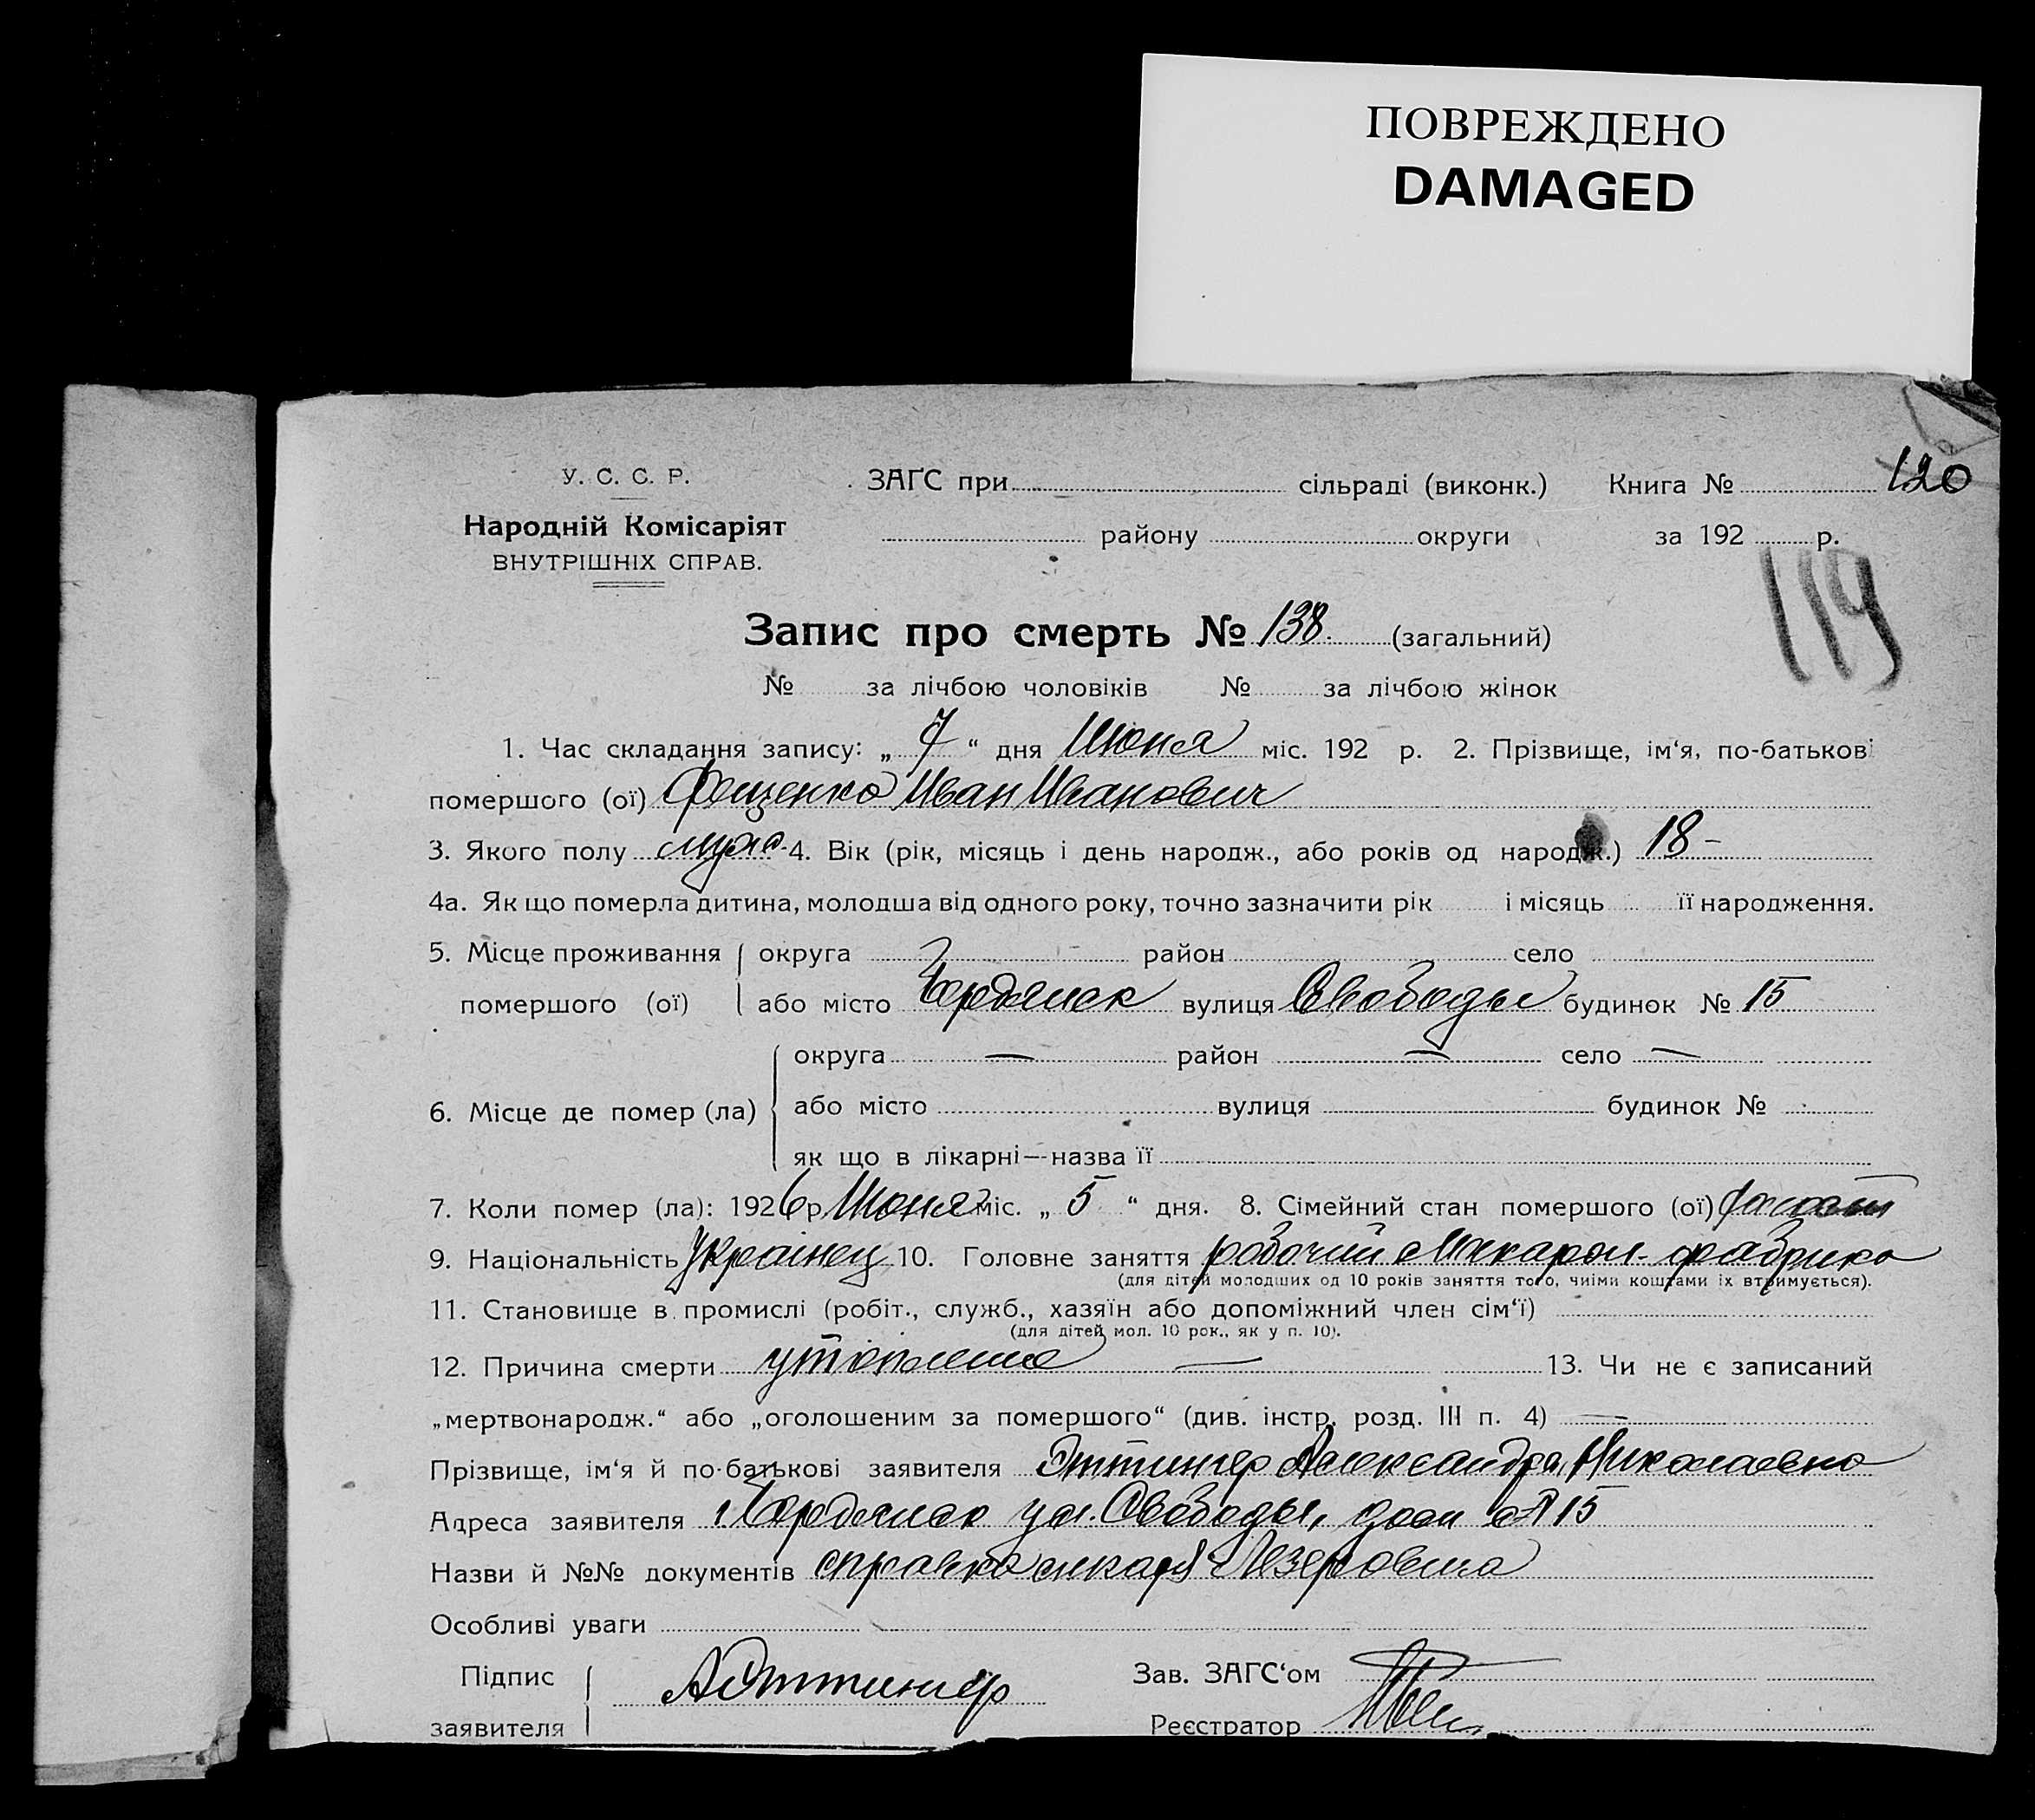 ПОВРЕЖДЕНО
DAMAGED
У. С. С. Р.
ЗАГС при сільраді (виконк.) Книга № 120
Народній Комісаріят
району округи за 192 р.
ВНУТРІШНІХ СПРАВ.
119
Запис про смерть № 138. (загальний)
№ за лічбою чоловіків № за лічбою жінок
1. Час складання запису: „ 7 “ дня Июня міс. 192 р. 2. Прізвище, ім‘я, по-батькові
помершого (ої) Фещенко Иван Иванович
3. Якого полу муж. 4. Вік (рік, місяць і день народж., або років од народж.) 18 –
4а. Як що померла дитина, молодша від одного року, точно зазначити рік і місяць її народження.
5. Місце проживання округа район село
помершого (ої) або місто Бердянск вулиця Свободы будинок № 15
округа — район — село —
6. Місце де помер (ла) або місто вулиця будинок №
як що в лікарні—назва її
7. Коли помер (ла): 1926 р Июня міс. „ 5 “ дня. 8. Сімейний стан помершого (ої) холост
9. Національність Украінец 10. Головне заняття рабочий Макарон. фабрика
(для дітей молодших од 10 років заняття того, чиїми коштами їх втримується).
11. Становище в промислі (робіт., служб., хазяїн або допоміжний член сім‘ї)
(для дітей мол. 10 рок., як у п. 10).
12. Причина смерти утопление — 13. Чи не є записаний
„мертвонародж.“ або „оголошеним за помершого“ (див. інстр. розд. III п. 4) —
Прізвище, ім‘я й по-батькові заявителя Эттингер Александра Николаевна
Адреса заявителя г. Бердянск ул. Свободы, дом № 15
Назви й №№ документів справка лекаря
Особливі уваги
Підпис АЭттингер Зав. ЗАГС‘ом
заявителя Реєстратор